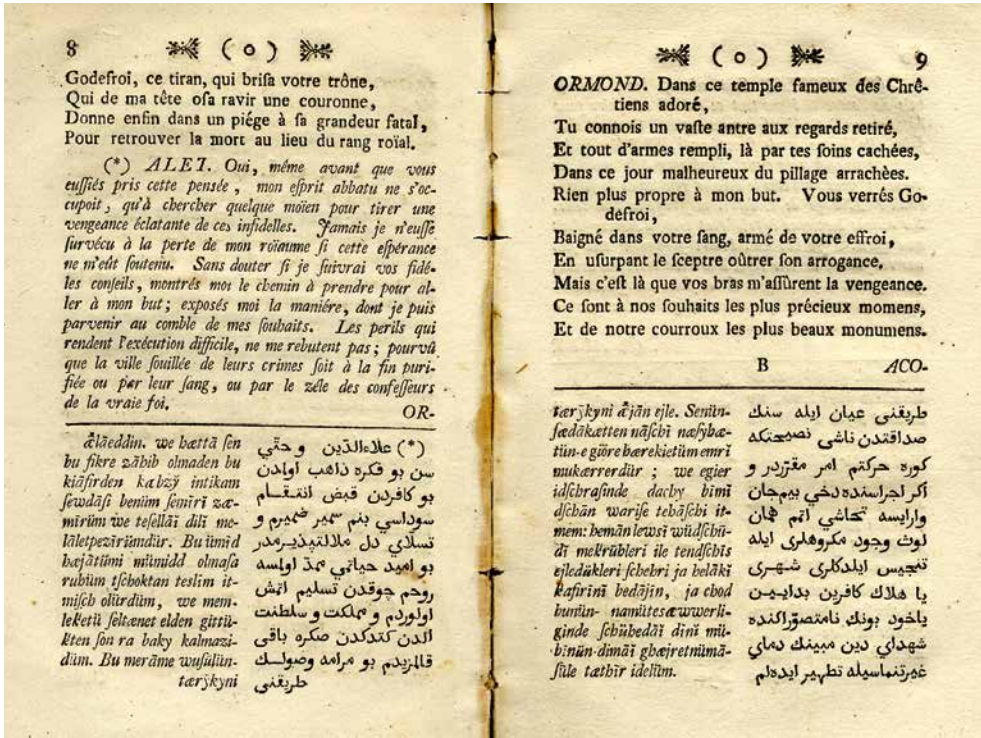 8 ( o )
Godefroi, ce tiran, qui briſa votre trône,
Qui de ma tête oſa ravir une couronne,
Donne enfin dans un piége à ſa grandeur fatal,
Pour retrouver la mort au lieu du rang roïal.
(*) ALEI. Oui, même avant que vous
euſſiés pris cette penſée, mon eſprit abbatu ne s'oc-
cupoit, qu'à chercher quelque moïen pour tirer une
vengeance éclatante de ces infidelles. Jamais je n'euſſe
ſurvécu à la perte de mon roïaume ſi cette eſpérance
ne m'eût ſoutenu. Sans douter ſi je ſuivrai vos fidé-
les conſeils, montrés moi le chemin à prendre pour al-
ler à mon but; exposés moi la maniére, dont je puis
parvenir au comble de mes ſouhaits. Les perils qui
rendent l'exécution difficile, ne me rebutent pas; pourvû
que la ville ſouillée de leurs crimes ſoit à la fin puri-
fiée ou par leur ſang, ou par le zéle des confeſſeurs
de la vraie foi.
OR-
ælāeddin. we hættā ſen
bu fikre zāhib olmaden bu
kiāfirden kabzÿ intikam
ſewdāſi benüm ſemīrī zæ-
mīrüm we teſellāī dilī me-
lāletpezīrümdür. Bu ümīd
hæjātümi mümidd olmaſa
ruhüm tſchoktan teslim it-
miſch olürdüm, we mem-
leketü ſeltænet elden gittü-
kten ſon ra baky kalmazi-
düm. Bu merāme wuſūlün-
tærȳkyni
(*) علاءالدّين وحتّى
سن بو فكره ذاهب اولمدن
بو كافردن قبض انتقام
سوداسي بنم سمير ضميرم و
تسلاي دل ملالتپذيرمدر
بو اميد حياتمي ممدّ اولمسه
روحم چوقدن تسليم اتمش
اولوردم و مملكت و سلطنت
الدن كتدكدن صكره باقى
قالمزيدم بو مرامه وصولك
طريقنى
( o ) 9
ORMOND. Dans ce temple fameux des Chrê-
tiens adoré,
Tu connois un vaſte antre aux regards retiré,
Et tout d'armes rempli, là par tes ſoins cachées,
Dans ce jour malheureux du pillage arrachèes.
Rien plus propre à mon but. Vous verrés Go-
defroi,
Baigné dans votre ſang, armé de votre effroi,
En uſurpant le ſceptre oûtrer ſon arrogance.
Mais c'eſt là que vos bras m'aſſûrent la vengeance.
Ce ſont à nos ſouhaits les plus précieux momens,
Et de notre courroux les plus beaux monumens.
B ACO-
tærȳkyni æjān ejle. Senün-
ſædākætten nāſchī næſyhæ-
tün-e göre hærekietüm emrī
mukærrerdür; we egier
idſchraſinde dachy bīmī
dſchān wariſe tehāſchi it-
mem: hemān lewsī wüdſchū-
dī mekrūhleri ile tendſchīs
ejledükleri ſchehri ja helākī
kafirīnī bedājīn, ja chod
bunün- namütesæwwerli-
ginde ſchühedāī dīnī mü-
bīnün-dimāī ghæjretnümā-
ſīle tæthīr idelüm.
طريقنى عيان ايله سنك
صداقتدن ناشى نصيحتكه
كوره حركتم امر مقرّردر و
اكر اجراسنده دخي بيم جان
وارايسه تحاشي اتمم همان
لوث وجود مكروهلرى ايله
تنجيس ايلدكلرى شهرى
يا هلاك كافرين بدايين
ياخود بونك نامتصوّرلكنده
شهداي دين مبينك دماي
غيرتنماسيله تطهير ايدهلم